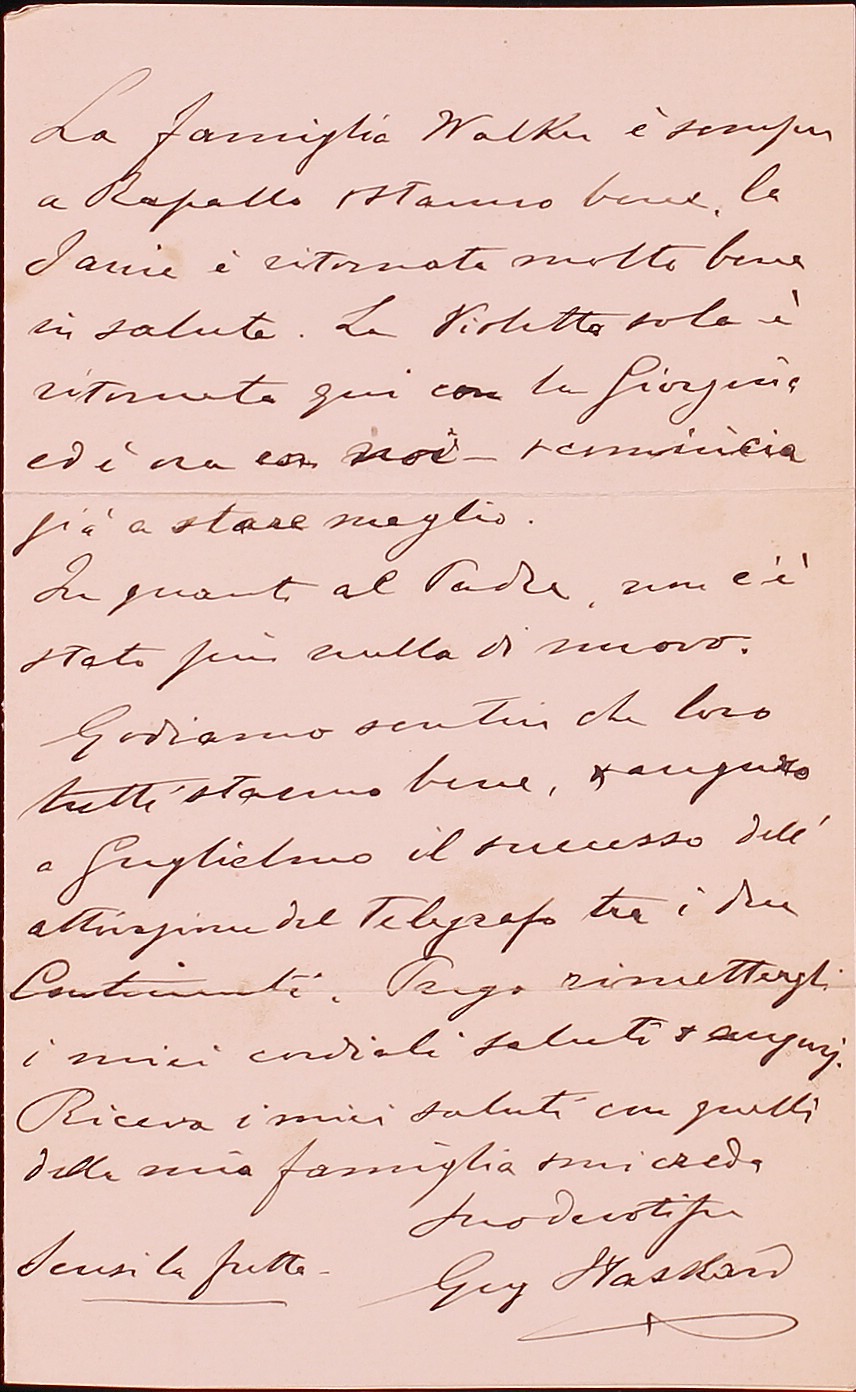 La famiglia Walker è sempre
a Rapallo & stanno bene, la
Janie è ritornata molto bene
in salute. La Violetta sola è
ritornata qui con la Giorgina
ed è ora con noi – & comincia
già a stare meglio.
In quanto al Padre, non c'è
stato più nulla di nuovo.
Godiamo sentire che loro
tutti stanno bene, & auguro
a Guglielmo il successo dell'
attivazione del Telegrafo tra i due
Continenti. Prego rimettergli
i miei cordiali saluti & augurj.
Riceva i miei saluti con quelli
della mia famiglia & mi creda
Suo devotiss
Scusi la fretta – Guy